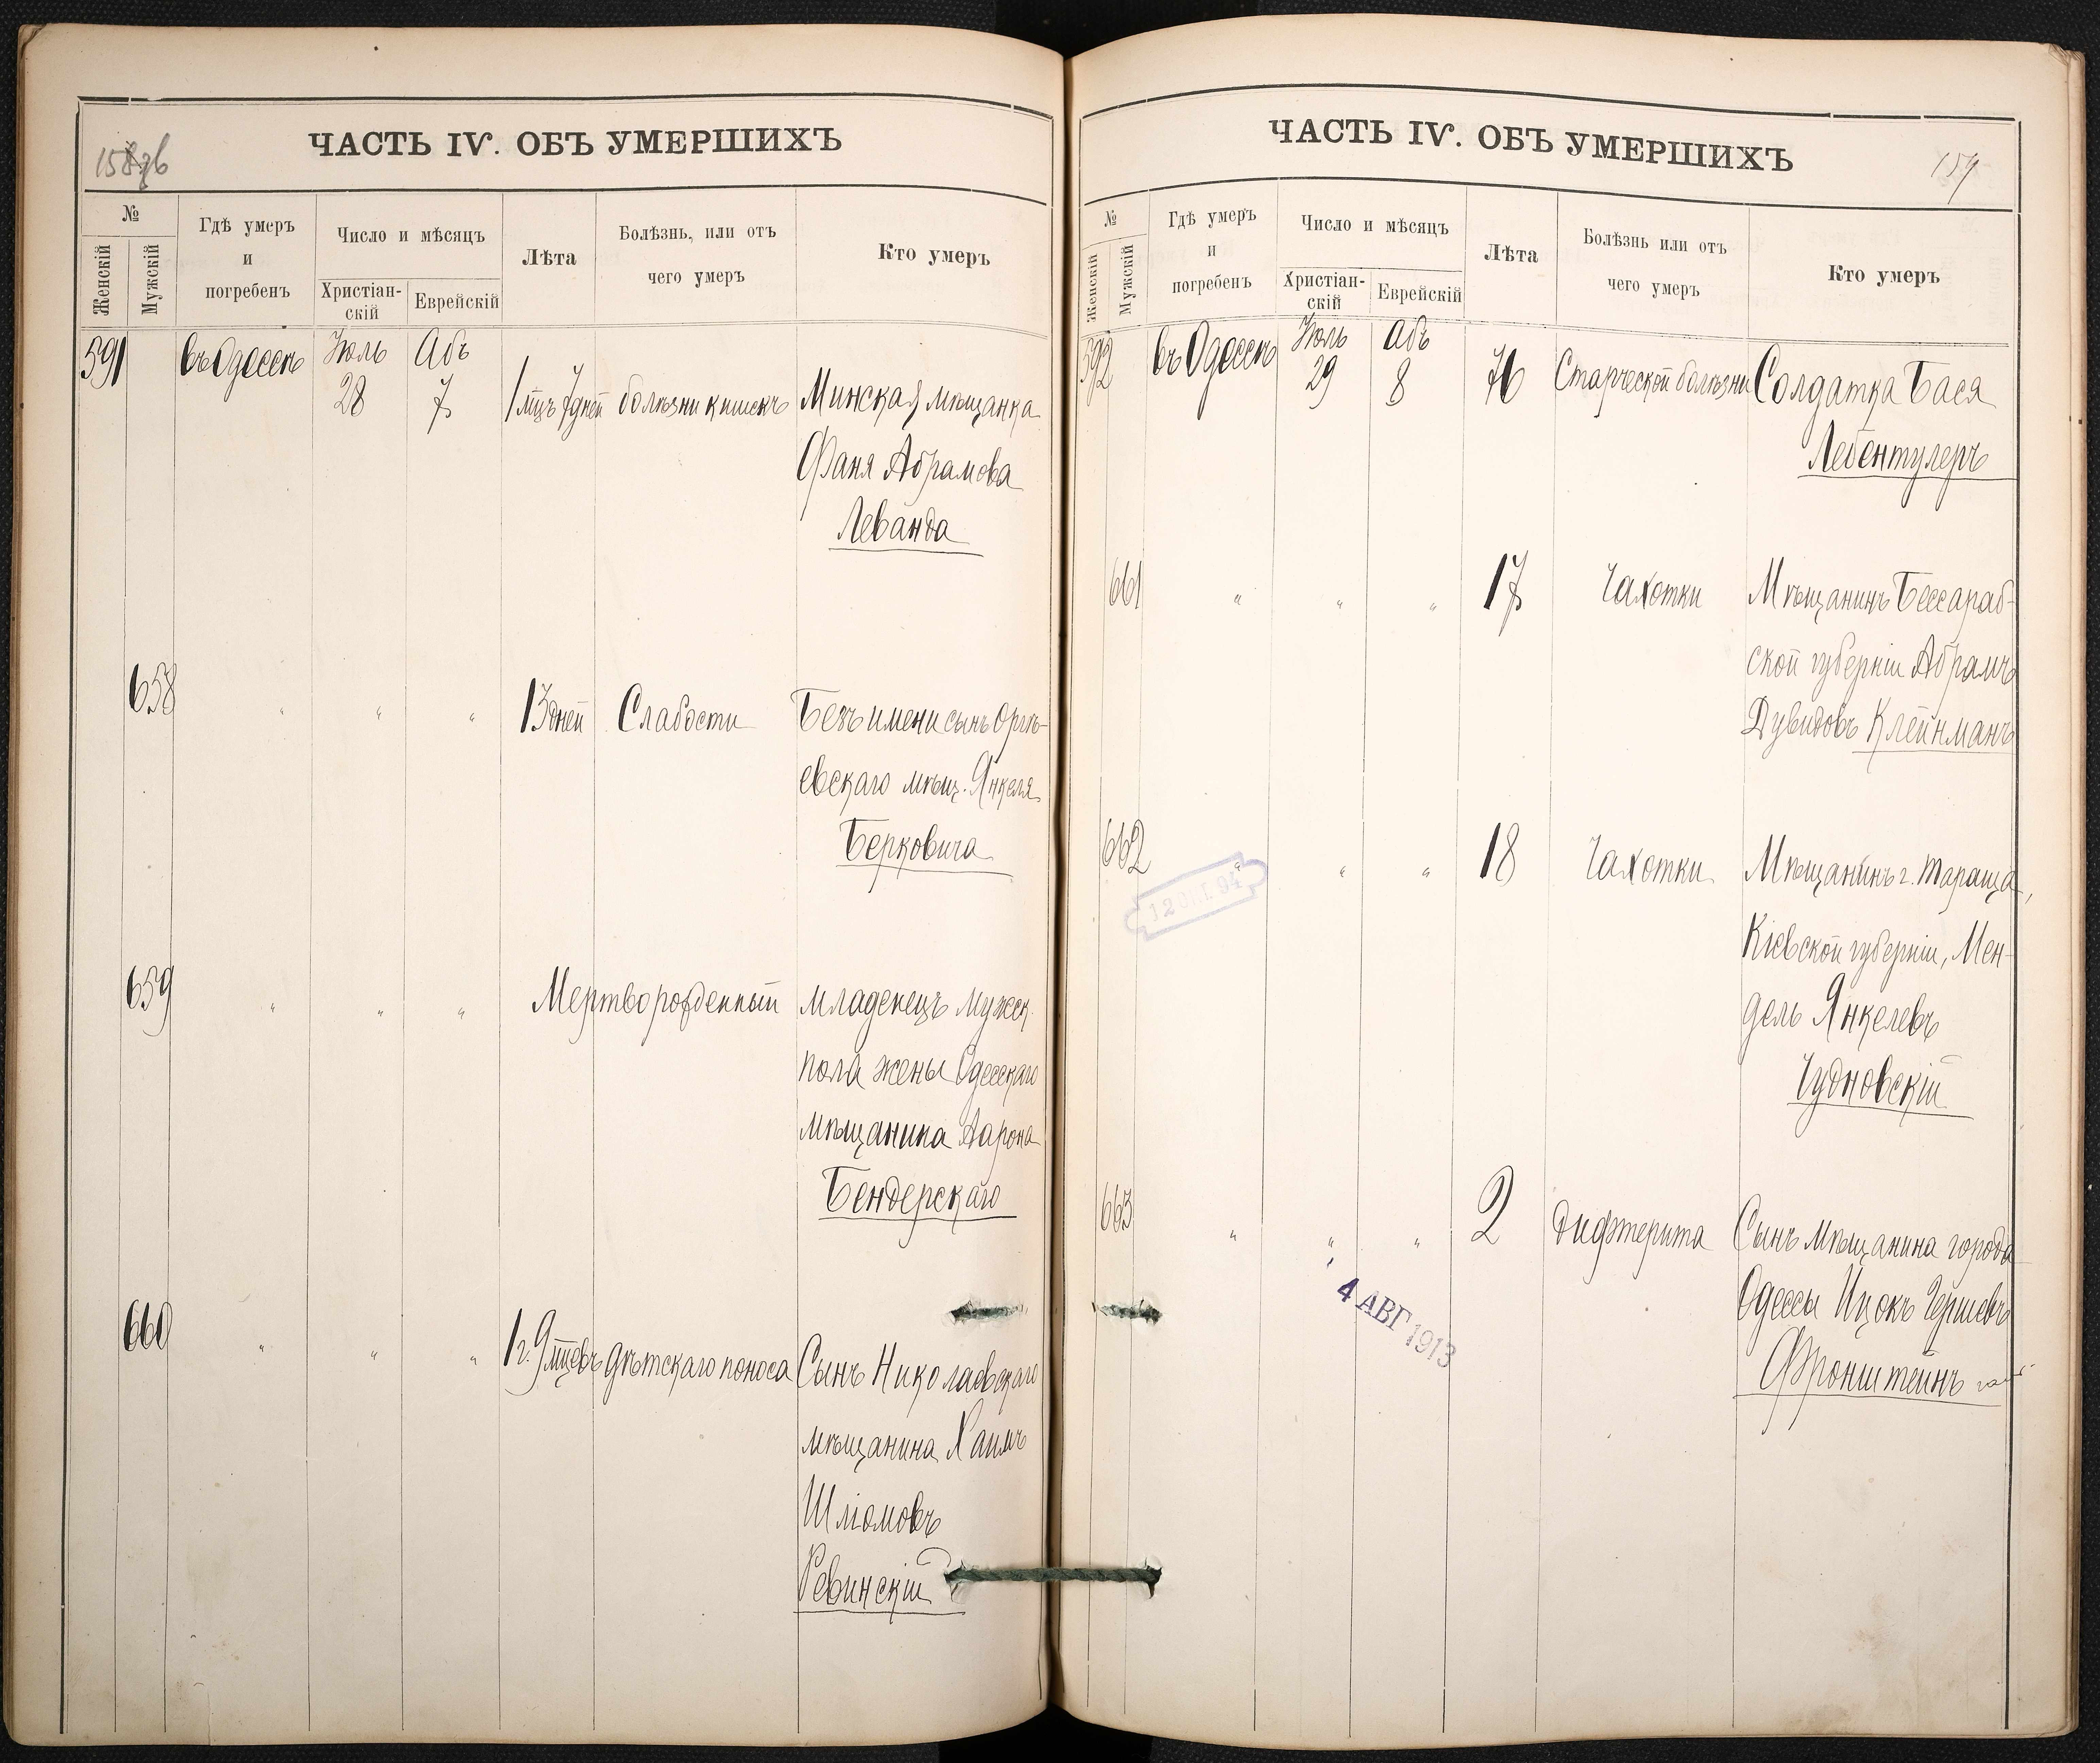 158об
ЧАСТЬ IV. ОБЪ УМЕРШИХЪ
№
Женскій
Мужскій
Гдѣ умеръ
и
погребенъ
Число и мѣсяцъ
Христіан-
скій
Еврейскій
Лѣта
Болѣзнь, или отъ
чего умеръ
Кто умеръ
591 въ Одессѣ Іюль Абъ
28 7 1 мцъ 7 дней болѣзни кишекъ Минская мѣщанка
Фаня Абрамова
Леванда
658 " " " 13 дней Слабости Безъ имени сынъ Оргѣ-
евскаго мѣщ. Янкеля
Берковича
659 " " " Мертворожденный младенецъ мужск.
пола жены Одесскаго
мѣщанина Аарона
Бендерскаго
660 " " " 1 г. 9 мцевъ дѣтскаго поноса Сынъ Николаевскаго
мѣщанина Хаимъ
Шліомовъ
Ревинскій
ЧАСТЬ IV. ОБЪ УМЕРШИХЪ
159
№
Женскій
Мужскій
Гдѣ умеръ
и
погребенъ
Число и мѣсяцъ
Христіан-
скій
Еврейскій
Лѣта
Болѣзнь или отъ
чего умеръ
Кто умеръ
592 въ Одессѣ Іюль Абъ
29 8 76 Старческой болѣзни Солдатка Бася
Лебентулеръ
661 " " " 17 Чахотки Мѣщанинъ Бессараб-
ской губерніи Абрамъ
Дувидовъ Клейнманъ
662 " " " 18 Чахотки Мѣщанинъ г. Тараща,
Кіевской губерніи, Мен-
дель Янкелевъ
Чудновскій
663 " " " 2 Дифтерита Сынъ мѣщанина города
Одессы Ицокъ Гершевъ
Фронштейнъ
4 АВГ 1913